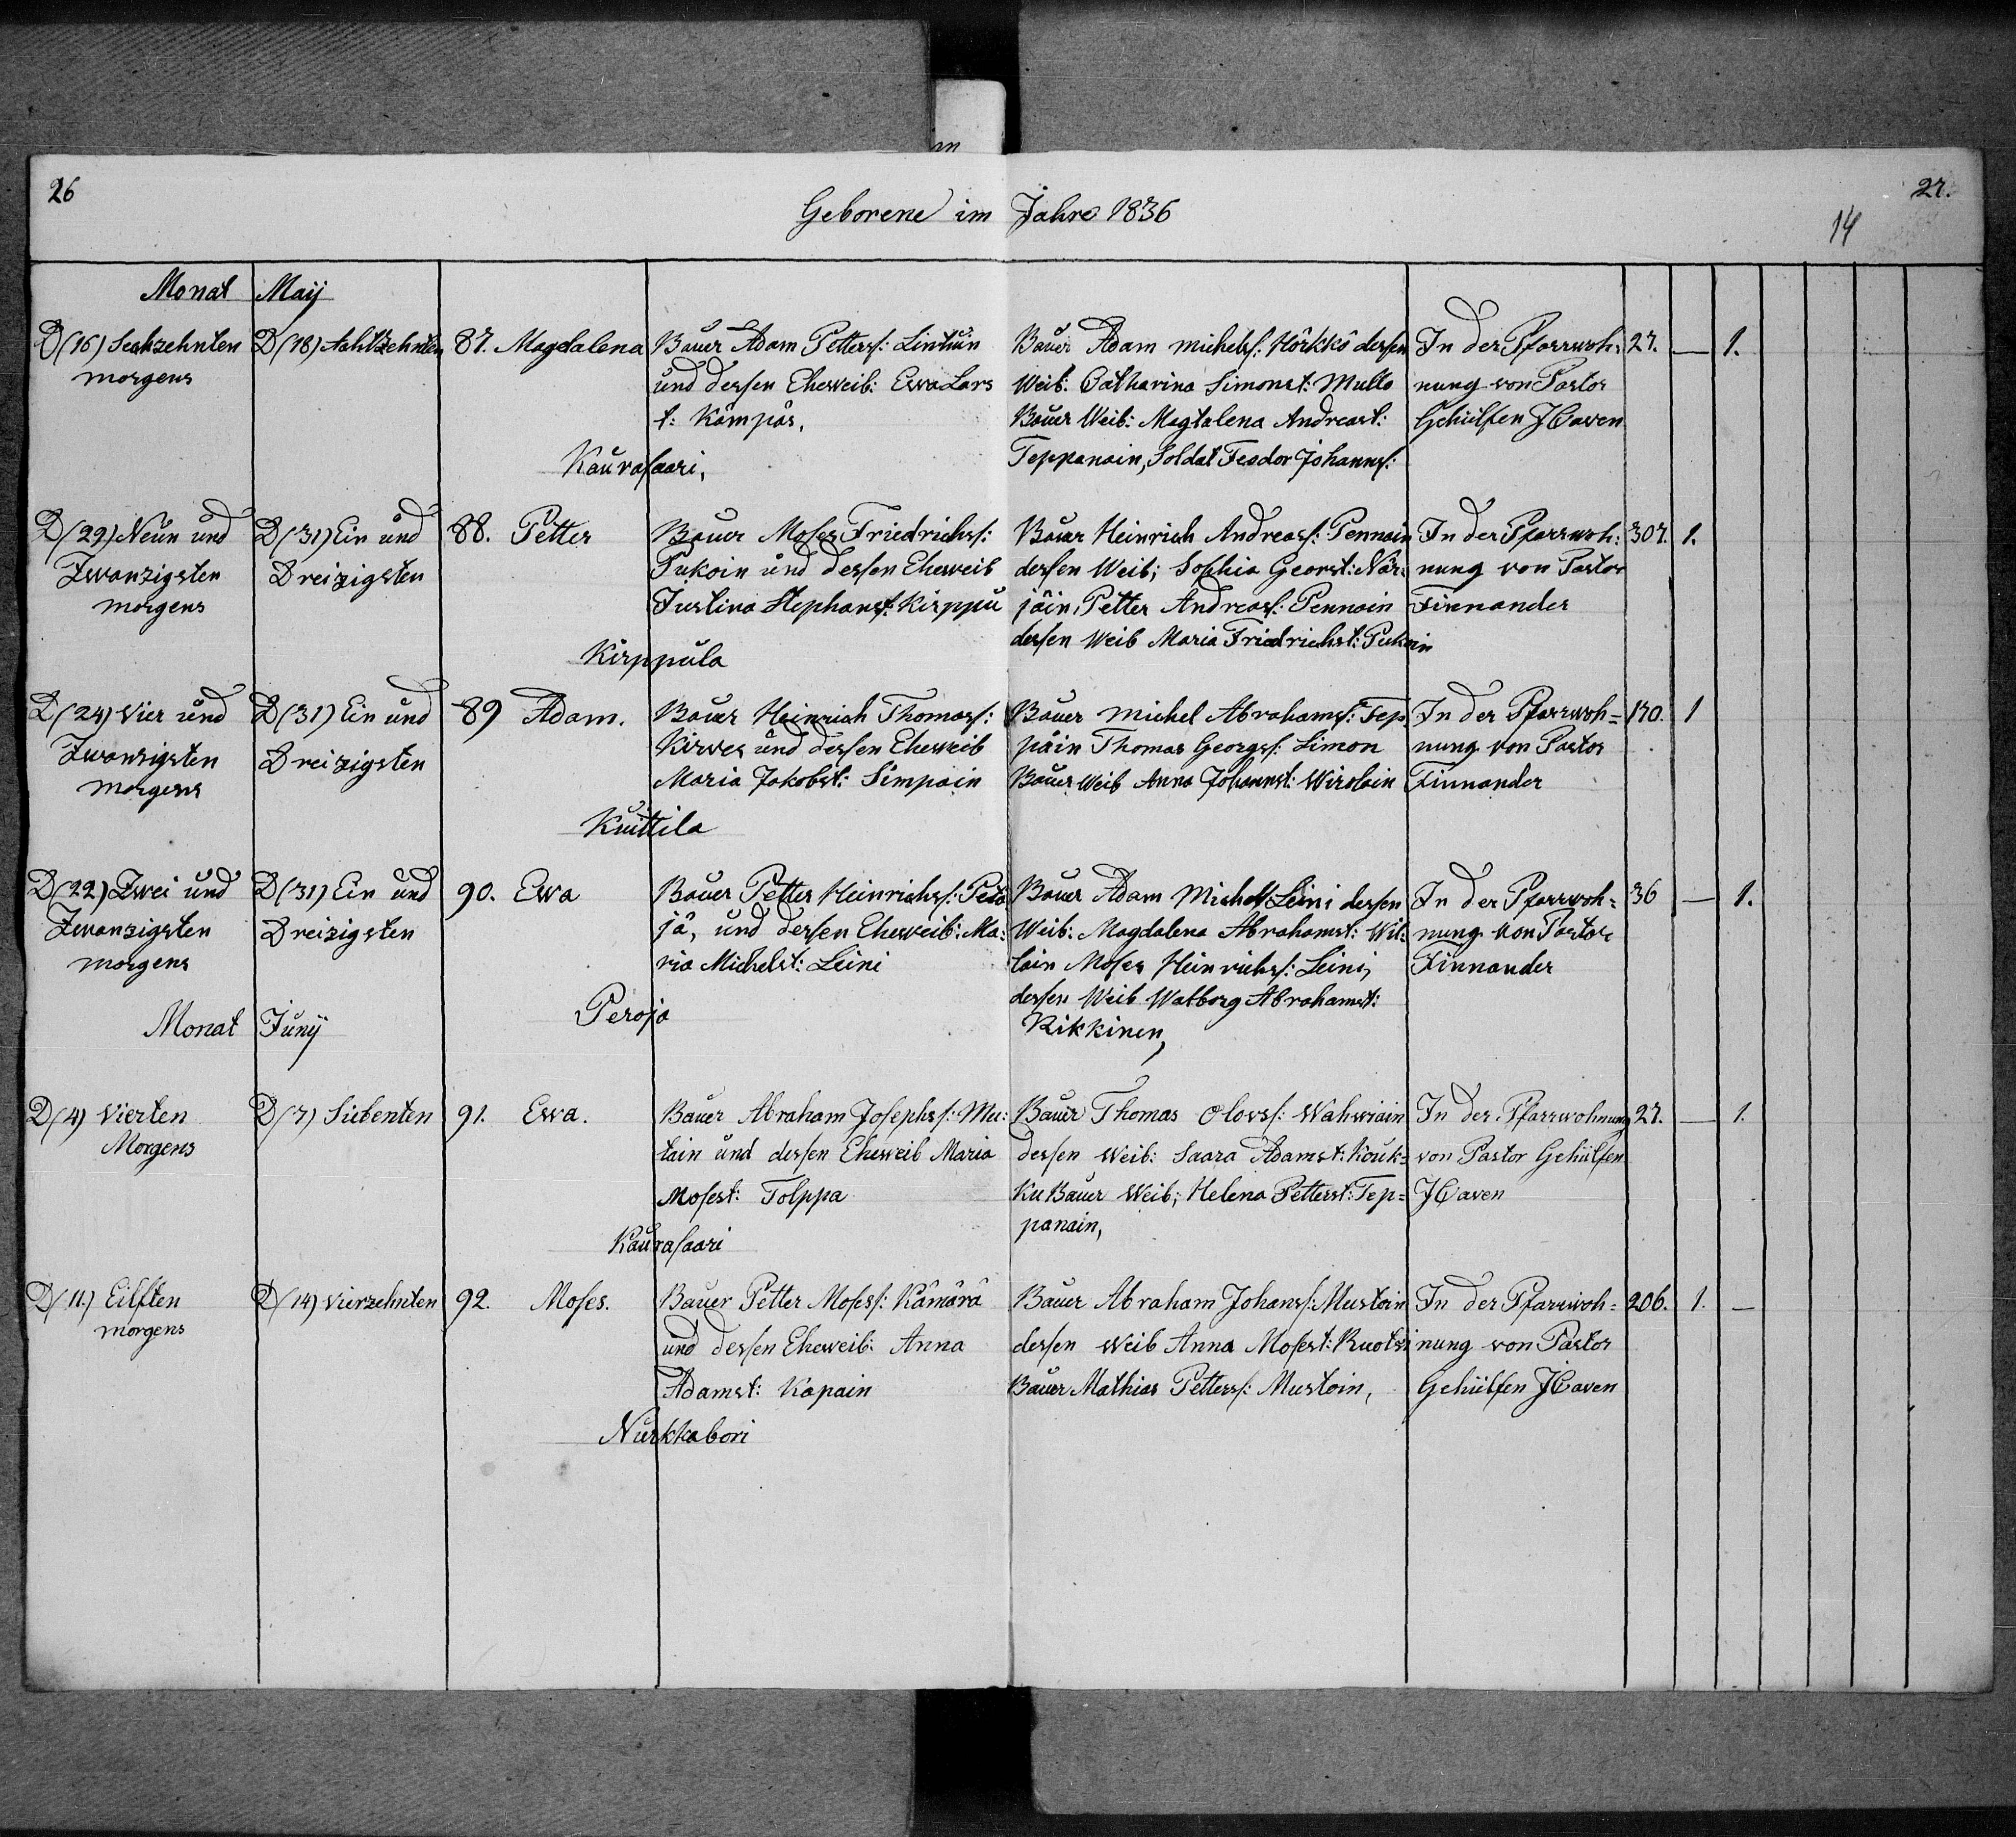 26
27.
14
Geborene im Jahre 1836
Monat Maij
D (16) Sechzehnten
morgens
D (18) Achtzehnten
87. Magdalena
Bauer Adam Petterss: Lintùin
und dessen Eheweib: Ewa Lars
t: Kämpäs,
Kaurasaari,
Bauer Adam michelss: Hörkkö dessen
Weib: Catharina Simonst: Multo
Bauer Weib: Magtalena Andreast:
Teppanain, Soldat Feodor Johannss:
In der Pfarrwoh:
nung von Pastor
Gehülfen JCaven
27. — 1.
D (29) Neun und
Zwanzigsten
morgens
D (31) Ein und
Dreizigsten
88. Petter
Bauer Moses Friedrichss:
Pukoin und dessen Eheweib
Justina Stephanst: Kirppu
Kirppula
Bauer Heinrich Andreass: Pennain
dessen Weib; Sophia Georst: När:
jäin, Petter Andreass: Pennain
dessen Weib Maria Friedrichst: Pukoin
In der Pfarrwoh:
nung von Pastor
Finnander
307. 1.
D (24) Vier und
Zwanzigsten
morgens
D (31) Ein und
Dreizigsten
89 Adam.
Bauer Heinrich Thomass:
Kirves und dessen Eheweib
Maria Jakobst: Simpain
Kuittila
Bauer Michel Abrahamss: Tep
päin Thomas Georgss: Limon
Bauer Weib Anna Johannst: Wirolain
In der Pfarrwoh=
nung von Pastor
Finnander
170. 1
D (22) Zwei und
Zwanzigsten
morgens
D (31) Ein und
Dreizigsten
90. Ewa
Bauer Petter Heinrichss: Petä
jä, und dessen Eheweib: Ma:
ria Michelst: Leini
Peroja
Bauer Adam Michels Leini dessen
Weib: Magdalena Abrahamst: Wil:
lain Moses Heinrichss: Leini,
dessen Weib Walborg Abrahamst:
Kikkinen,
In der Pfarrwoh=
nung von Pastor
Finnander
36 — 1.
Monat Junij
D (4) Vierten
Morgens
D (7) Siebenten
91. Ewa.
Bauer Abraham Josephss: Mu:
lain und dessen Eheweib Maria
Mosest: Tolppa
Kaurasaari
Bauer Thomas Olovss: Wahwiain
dessen Weib: Saara Adamst: Kouk=
Ku Bauer Weib; Helena Petterst: Tep=
panain,
In der Pfarrwohnung
von Pastor Gehülfen
JCaven
27. — 1.
D (11.) Eilften
morgens
D (14) Vierzehnten
92. Moses.
Bauer Petter Mosess: Kämärä
und dessen Eheweib: Anna
Adamst: Kapain
Nurkkabori
Bauer Abraham Johanss: Mustoin
dessen Weib Anna Mosest: Ruotsi
Bauer Mathias Petterss: Mustoin,
In der Pfarrwoh=
nung von Pastor
Gehülfen JCaven
206. 1. —